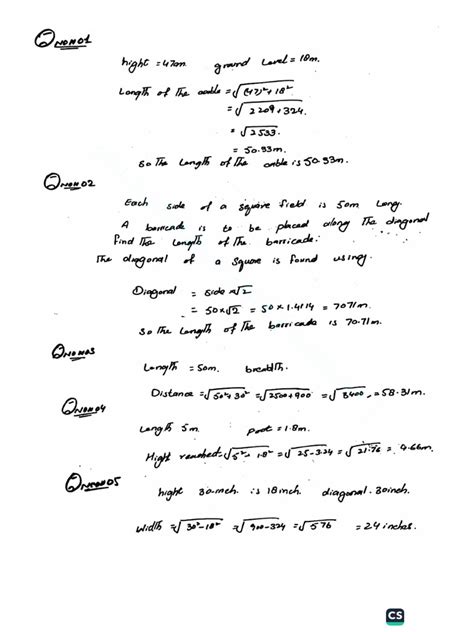 Qno#01
hight = 47m ground Level = 18m.
Length of The cable = √(47)²+18²
= √2209+324
= √2533.
= 50.33m.
so the Length of the cable is 50.33m.
Qno#02
Each side of a square field is 50m Long.
A barricade is to be placed along The diagonal
Find The Length of The barricade.
The diagonal of a square is found using.
Diagonal = side×√2
= 50×√2 = 50×1.4114 = 7071m.
So The Length of The barricade is 70.71m.
Qno#03
Length = 50m. breadth.
Distance = √50²+30² = √2500+900 = √3400 = 58.31m.
Qno#04
Length 5m. = 1.8m.
Hight reached = √5² 1.8² = √25-324 = √21.76 = 4.66m.
Qno#05
hight is 18inch. diagonal. 30inch.
Width = √30²-18² = √900-324 = √576 = 24 inches.
CS